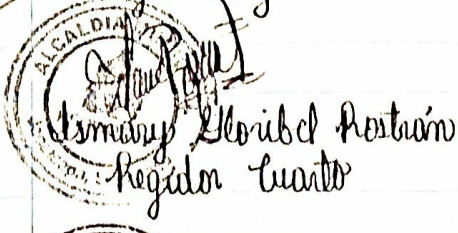 ALCALDIA
Ismary Gloribel Rostrán
Regidor Cuarto